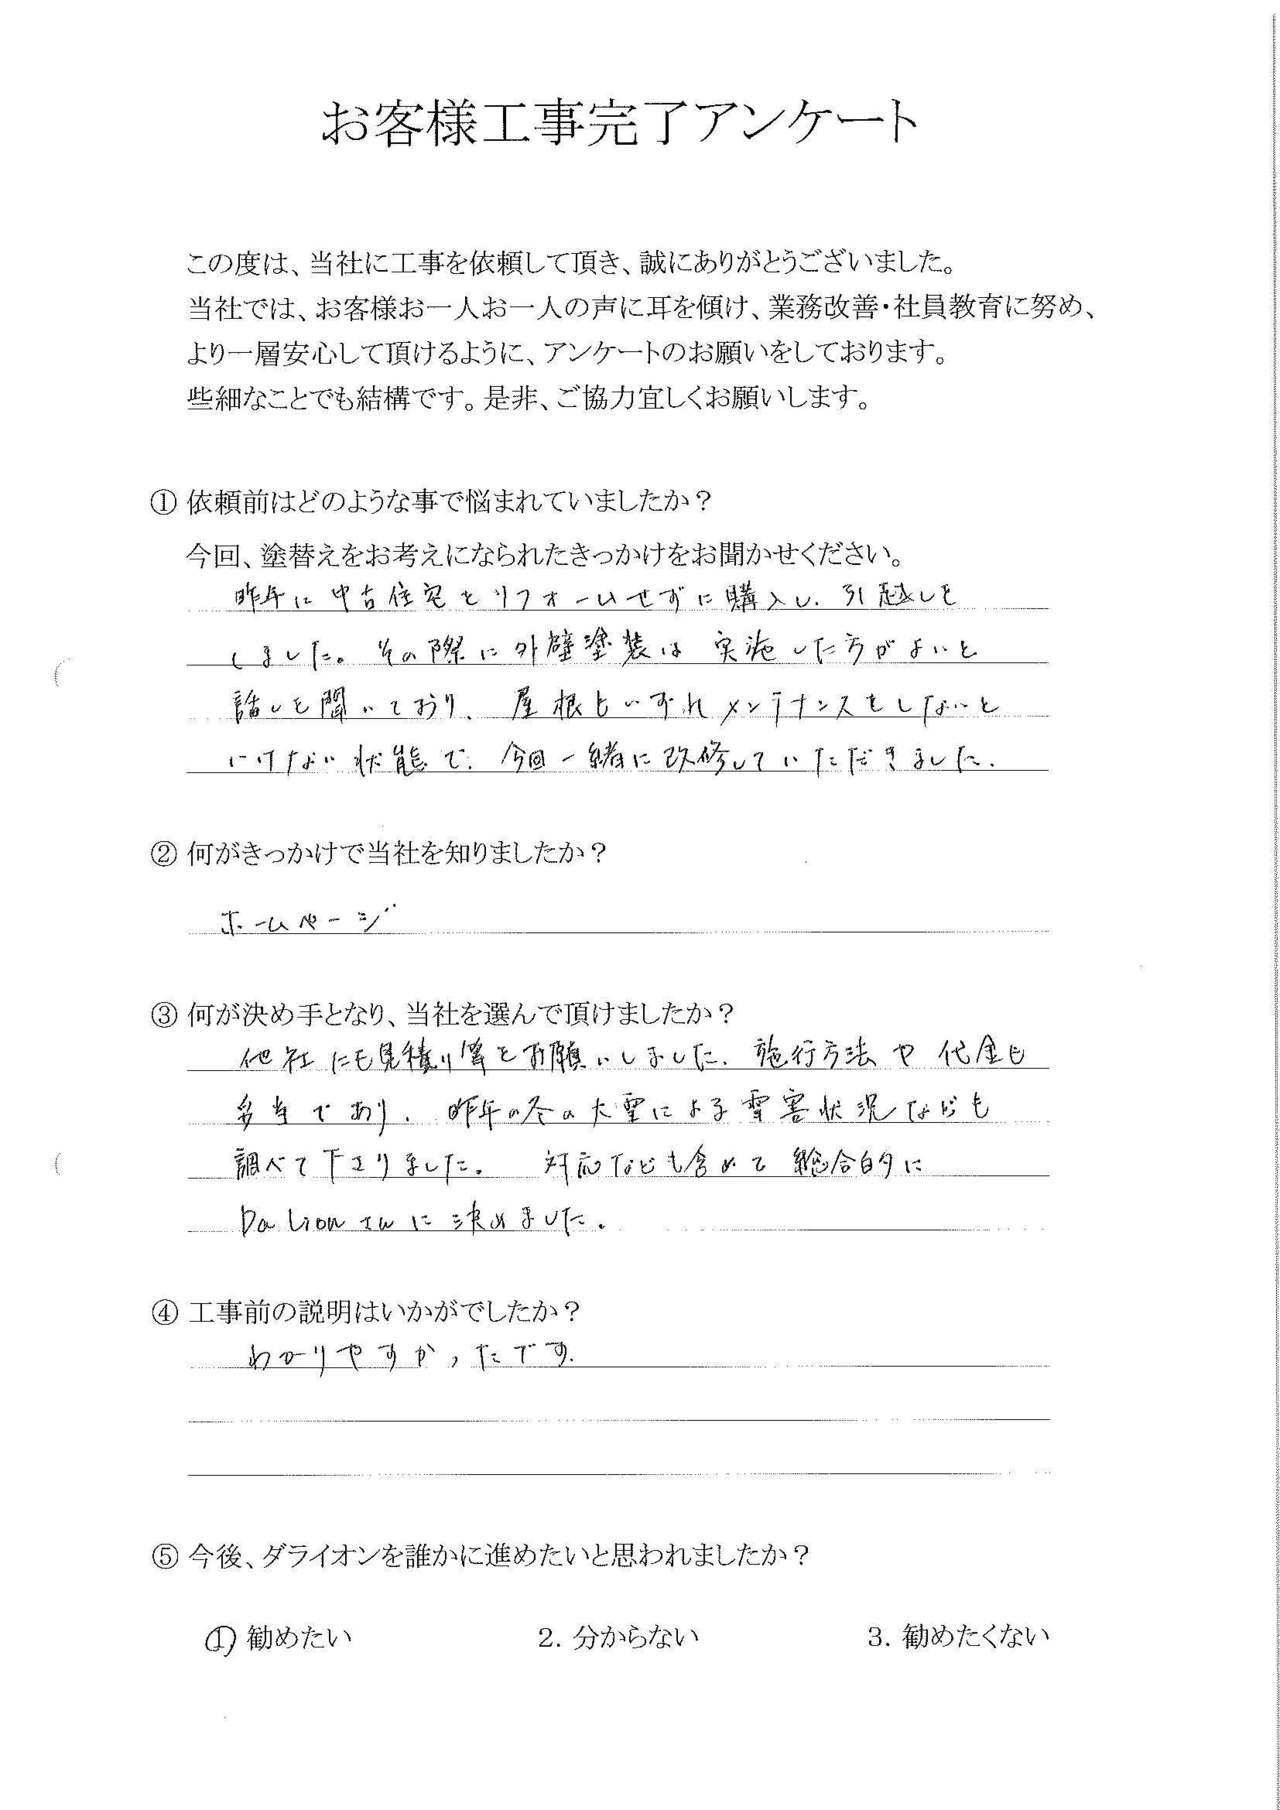 お客様工事完了アンケート
この度は、当社に工事を依頼して頂き、誠にありがとうございました。
当社では、お客様お一人お一人の声に耳を傾け、業務改善・社員教育に努め、
より一層安心して頂けるように、アンケートのお願いをしております。
些細なことでも結構です。是非、ご協力宜しくお願いします。
① 依頼前はどのような事で悩まれていましたか？
今回、塗替えをお考えになられたきっかけをお聞かせください。
昨年に中古住宅をリフォームせずに購入し、引越しを
しました。その際に外壁塗装は実施した方がよいと
話しを聞いており、屋根もいずれメンテナンスをしないと
いけない状態で、今回一緒に改修していただきました。
② 何がきっかけで当社を知りましたか？
ホームページ
③ 何が決め手となり、当社を選んで頂けましたか？
他社にも見積り等をお願いしました。施行方法や代金も
妥当であり、昨年の冬の大雪による雪害状況なども
調べて下さりました。対応なども含めて総合的に
Da Lionさんに決めました。
④ 工事前の説明はいかがでしたか？
わかりやすかったです。
⑤ 今後、ダライオンを誰かに進めたいと思われましたか？
① 勧めたい 2. 分からない 3. 勧めたくない